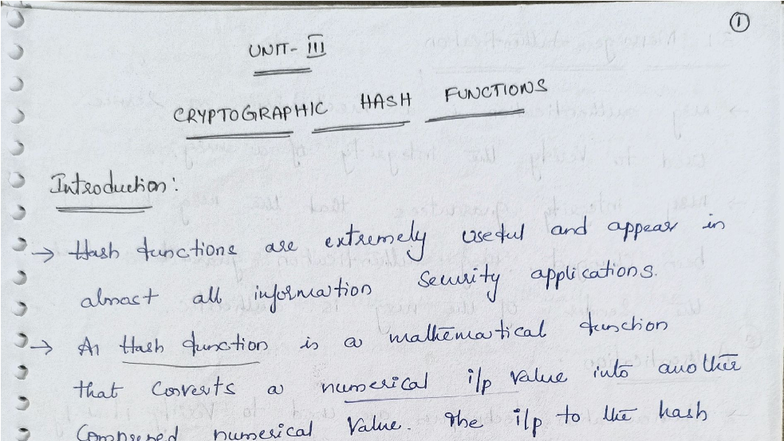 1
UNIT- III
CRYPTOGRAPHIC HASH FUNCTIONS
Introduction:
→ Hash functions are extremely useful and appear in
almost all information security applications.
→ An Hash function is a mathematical function
that converts a numerical i/p value into another
Compressed numerical value. The i/p to the hash